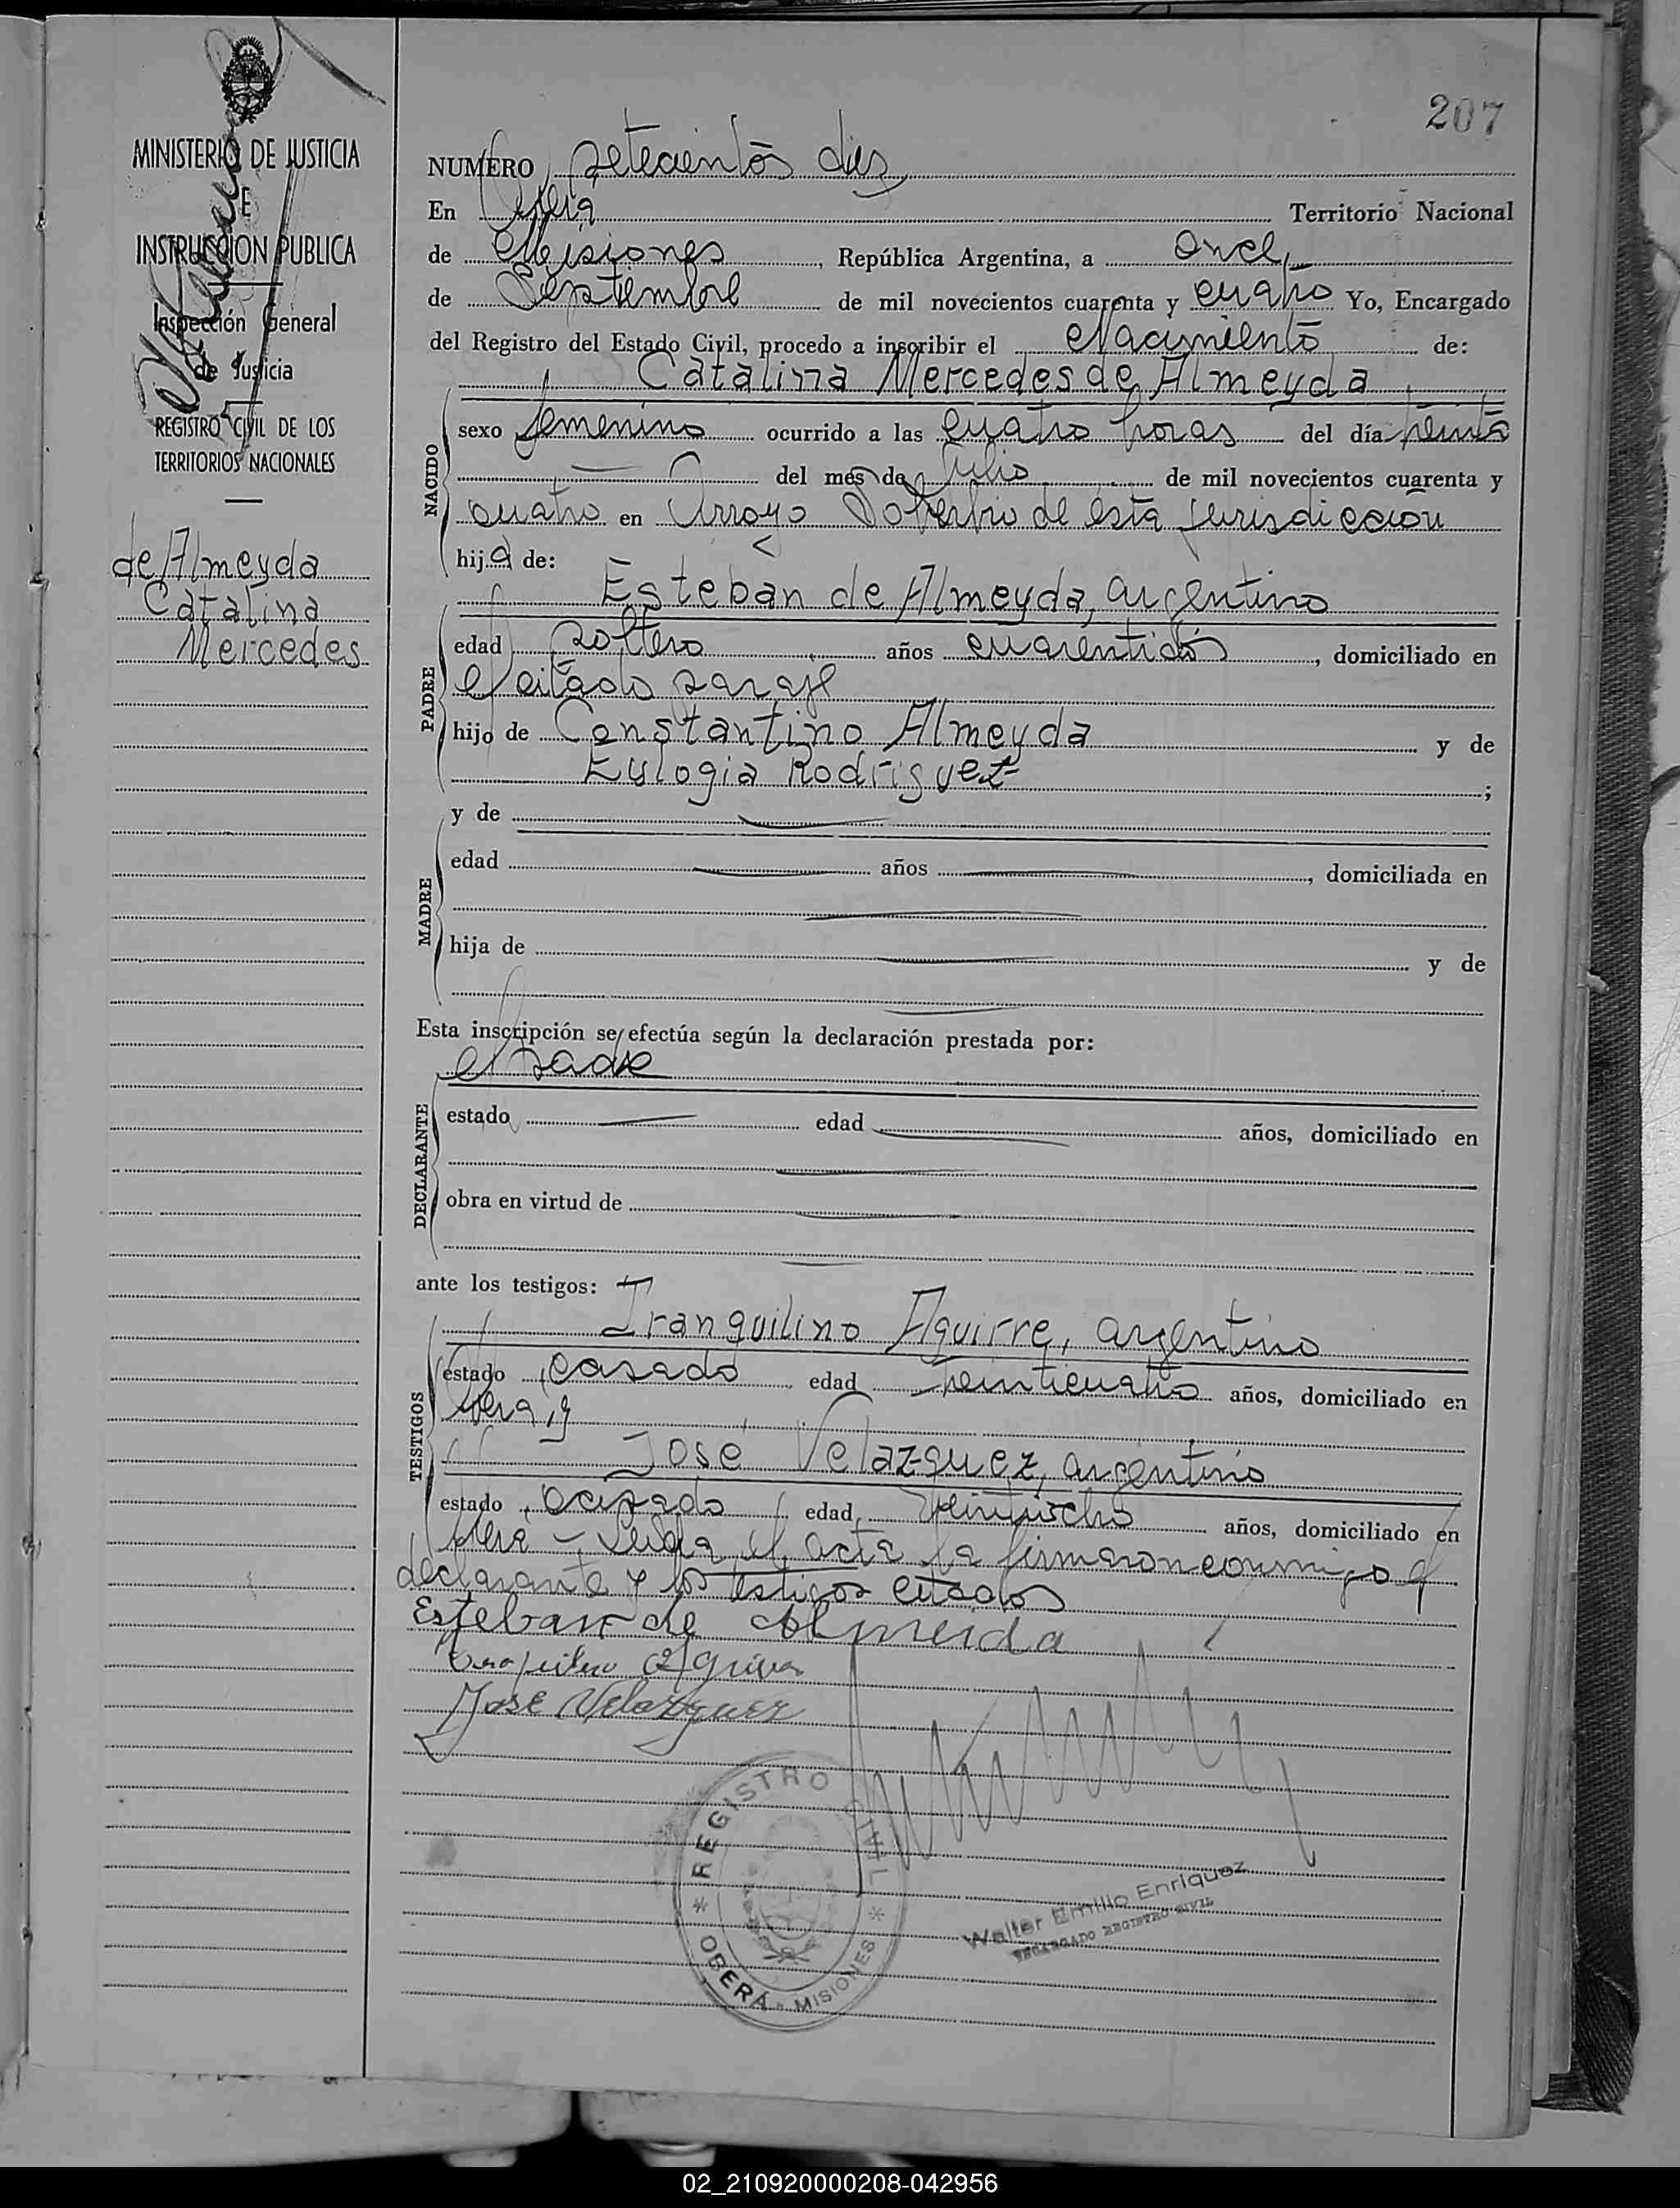 207
MINISTERIO DE JUSTICIA
E
INSTRUCCION PUBLICA
Inspección General
de Justicia
REGISTRO CIVIL DE LOS
TERRITORIOS NACIONALES
de Almeyda
Catalina
Mercedes
NUMERO setecientos diez
En Obera Territorio Nacional
de Misiones, República Argentina, a once
de Septiembre de mil novecientos cuarenta y cuatro Yo, Encargado
del Registro del Estado Civil, procedo a inscribir el Nacimiento de:
Catalina Mercedes de Almeyda
NACIDO
sexo femenino ocurrido a las cuatro horas del día
del mes de Julio de mil novecientos cuarenta y
cuatro en Arroyo Soberbio de esta jurisdiccion
hija de:
Esteban de Almeyda, argentino
PADRE
edad soltero años cuarentidós, domiciliado en
el citado paraje
hijo de Constantino Almeyda y de
Eulogia Rodriguez ;
y de
MADRE
edad años , domiciliada en
hija de y de
Esta inscripción se efectúa según la declaración prestada por:
el padre
DECLARANTE
estado edad años, domiciliado en
obra en virtud de
ante los testigos:
Tranquilino Aguirre, argentino
TESTIGOS
estado casado edad años, domiciliado en
Obera, y
José Velazquez, argentino
estado casado edad años, domiciliado en
Obera - Leida el acta la firmaron conmigo el
declarante y los testigos citados
Esteban de Almeida
José Velazquez
REGISTRO CIVIL
* OBERÁ - MISIONES *
Walter Emilio Enriquez
ENCARGADO REGISTRO CIVIL
02_210920000208-042956